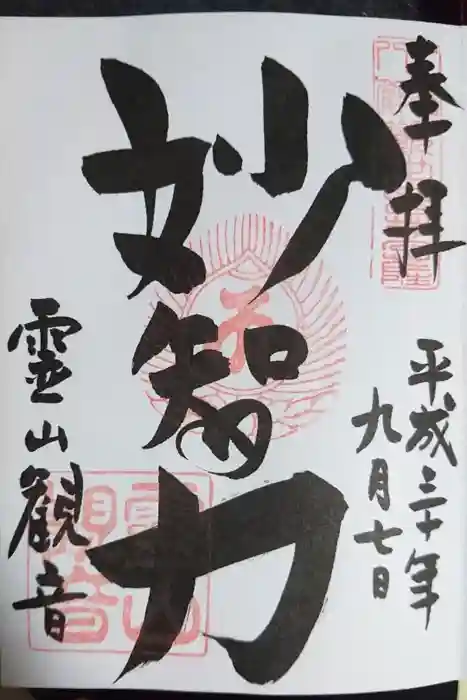 奉拝
平成三十年
九月七日
妙智力
霊山観音
霊山
観音